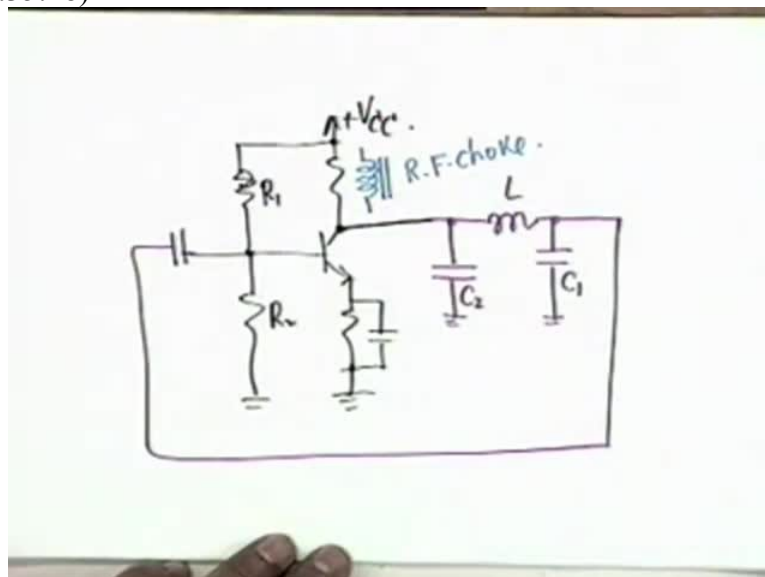 +Vcc.
R.F. choke.
R₁
L
R₂
C₂
C₁